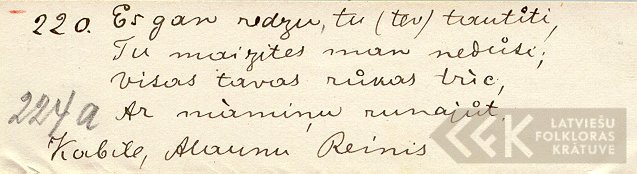 220. Es gan redzu, tu (tev) tautīti,
Tu maizītes man nedūsi;
Visas tavas rūkas trīc,
224a Ar māmiņu runajūt.
Kabile, Alaunu Reinis
LATVIEŠU
FOLKLORAS
KRĀTUVE